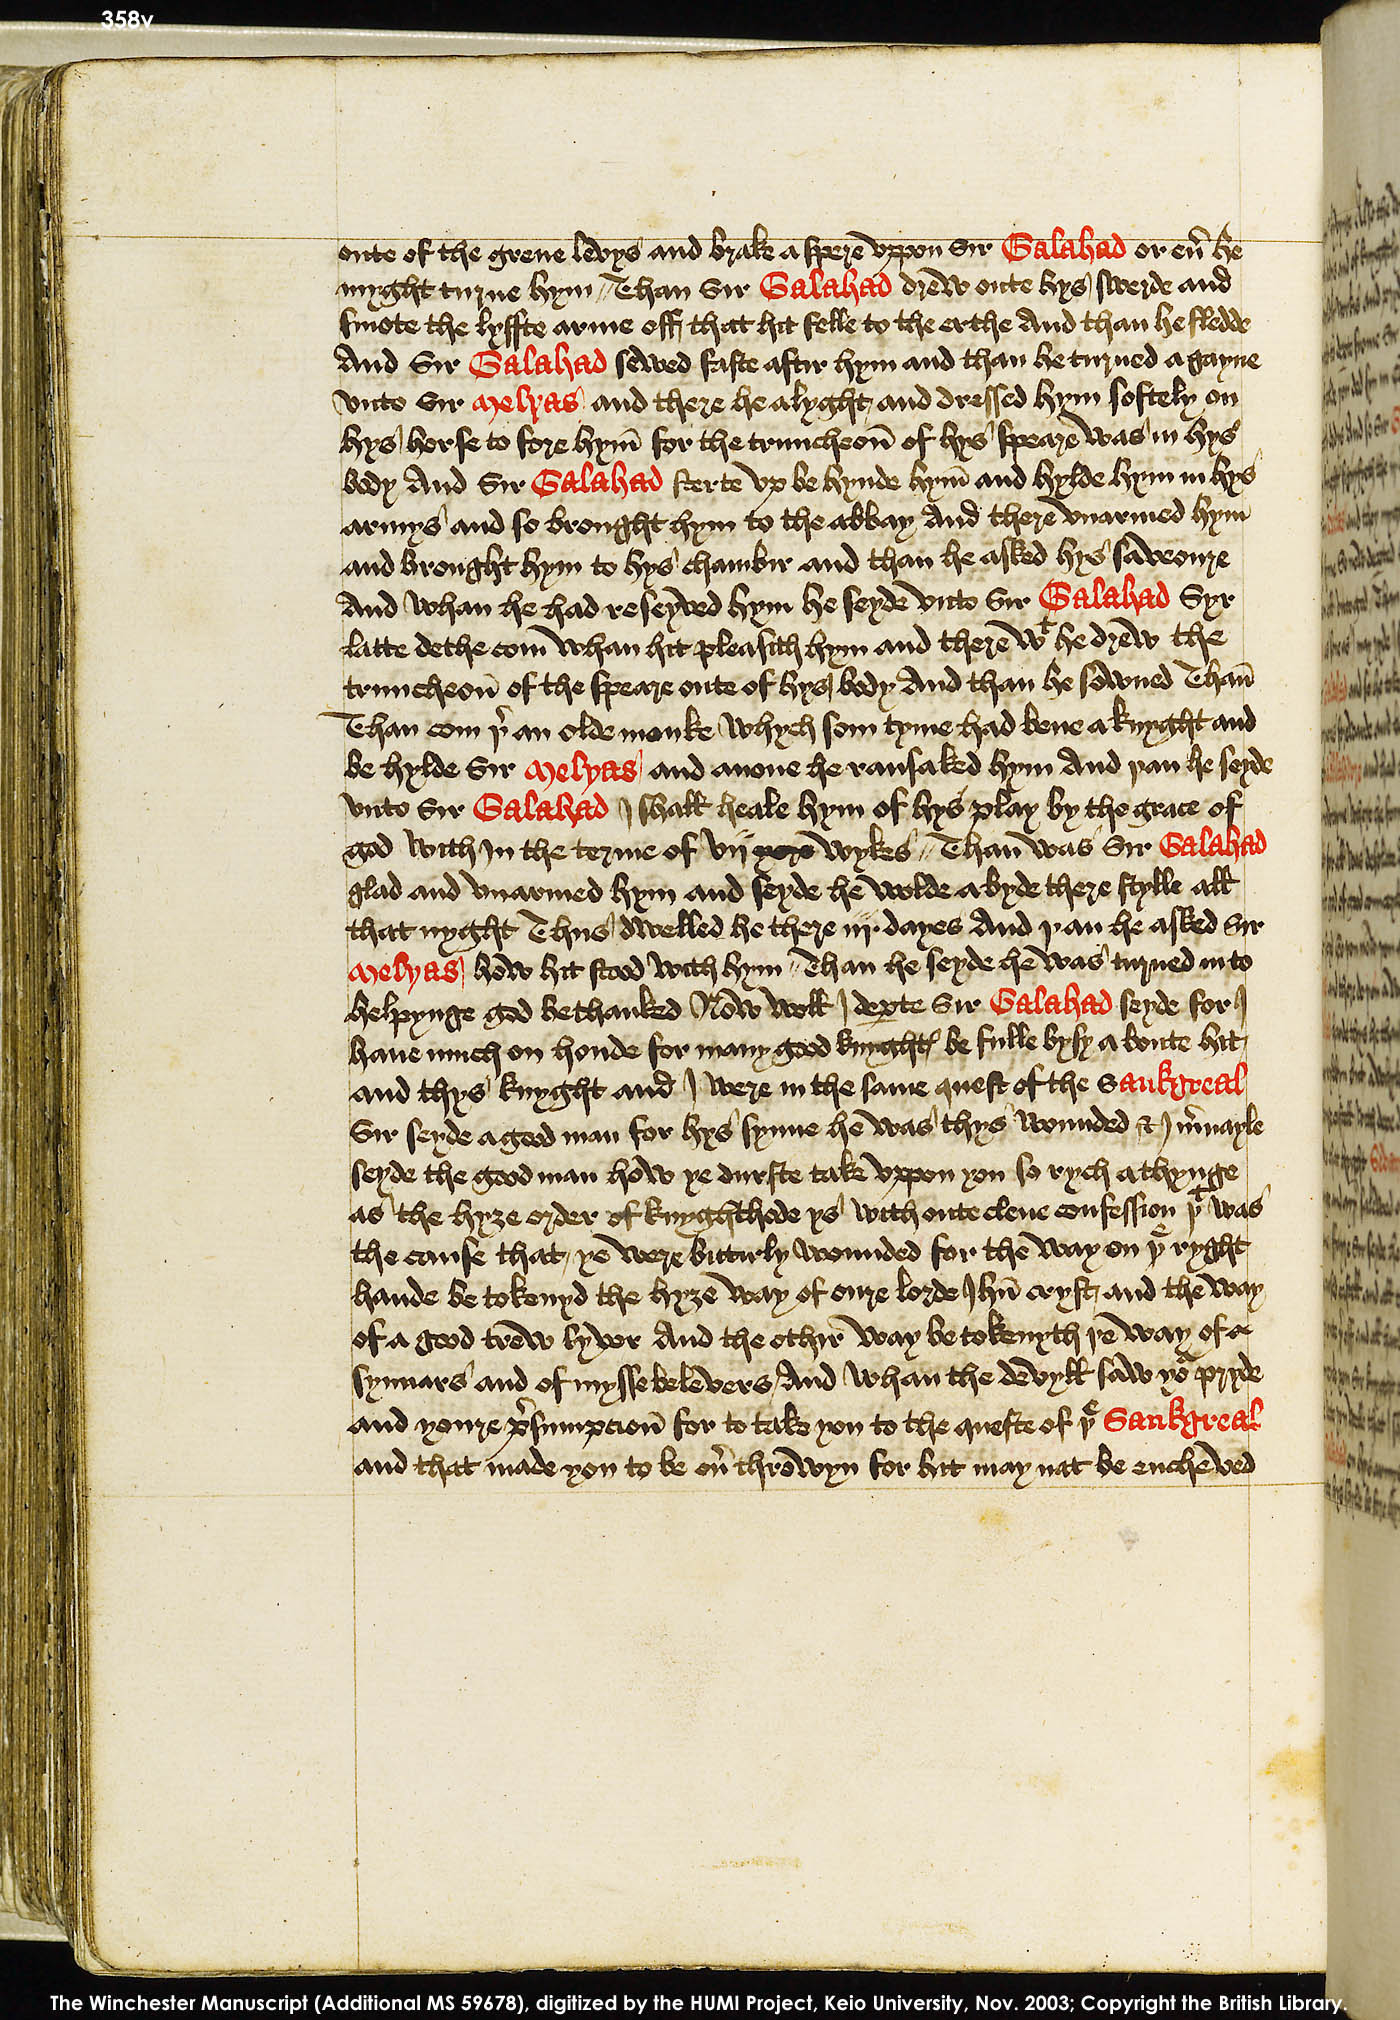 358v
oute of the grene levys and brake a spere vppon Sir Galahad or eu̅ he
myght turne hym // Than Sir Galahad drew oute hys swerde and
smote the lyffte arme off that hit felle to the erthe And than he fledde
And Sir Galahad sewed faste aftir hym and than he turned a gayne
vnto Sir Melyas and there he alyght and dressed hym softely on
hys horse to fore hym̅ for the truncheon̅ of hys speare was in hys
body And Sir Galahad sterte vp be hynde hym̅ and hylde hym in hys
armys and so brought hym to the abbay And there vnarmed hym
and brought hym to hys chambir and than he asked hys saveoure
And whan he had reseyved hym he seyde vnto Sir Galahad Syr
latte dethe com whan hit pleasith hym and there wᵗ he drew the
truncheon̅ of the speare oute of hys body And than he sowned Than̅
Than com þ͛ an olde monke whych som tyme had bene a knyght and
be hylde Sir Melyas and anone he ransaked hym And þan he seyde
vnto Sir Galahad I shall heale hym of hys play by the grace of
god with In the terme of vij wykes // Than̅ was Sir Galahad
glad and vnarmed hym and seyde he wolde a byde there stylle all
that nyght Thus dwelled he there iij dayes And þan he asked Sir
Melyas how hit stood with hym // Than he seyde he was turned in to
helpynge god be thanked Now woll I deꝑte Sir Galahad seyde for I
haue much on honde for many good knyghtꝭ be fulle bysy a boute hit
and thys knyght and I were in the same quest of the Sankgreal
Sir seyde a good man for hys synne he was thys wounded & I m͛uayle
seyde the good man how ye durste take vppon you so rych a thynge
as the hyʒe order of knyghthode ys with oute clene confession þᵗ was
the cause that ye were bittirly wounded for the way on þᵉ ryght
hande be tokenyd the hyʒe way of oure lorde Ihu̅ cryst and the way
of a good trew lyver And the othir way be tokenyth þe way of
synnars and of mysse belevers And whan the devyll saw yoʳ pryde
and youre p͛sumpcion̅ for to take you to the queste of þᵉ Sankgreal
and that made you to be ou͛ throwyn for hit may nat be encheved
The Winchester Manuscript (Additional MS 59678), digitized by the HUMI Project, Keio University, Nov. 2003; Copyright the British Library.